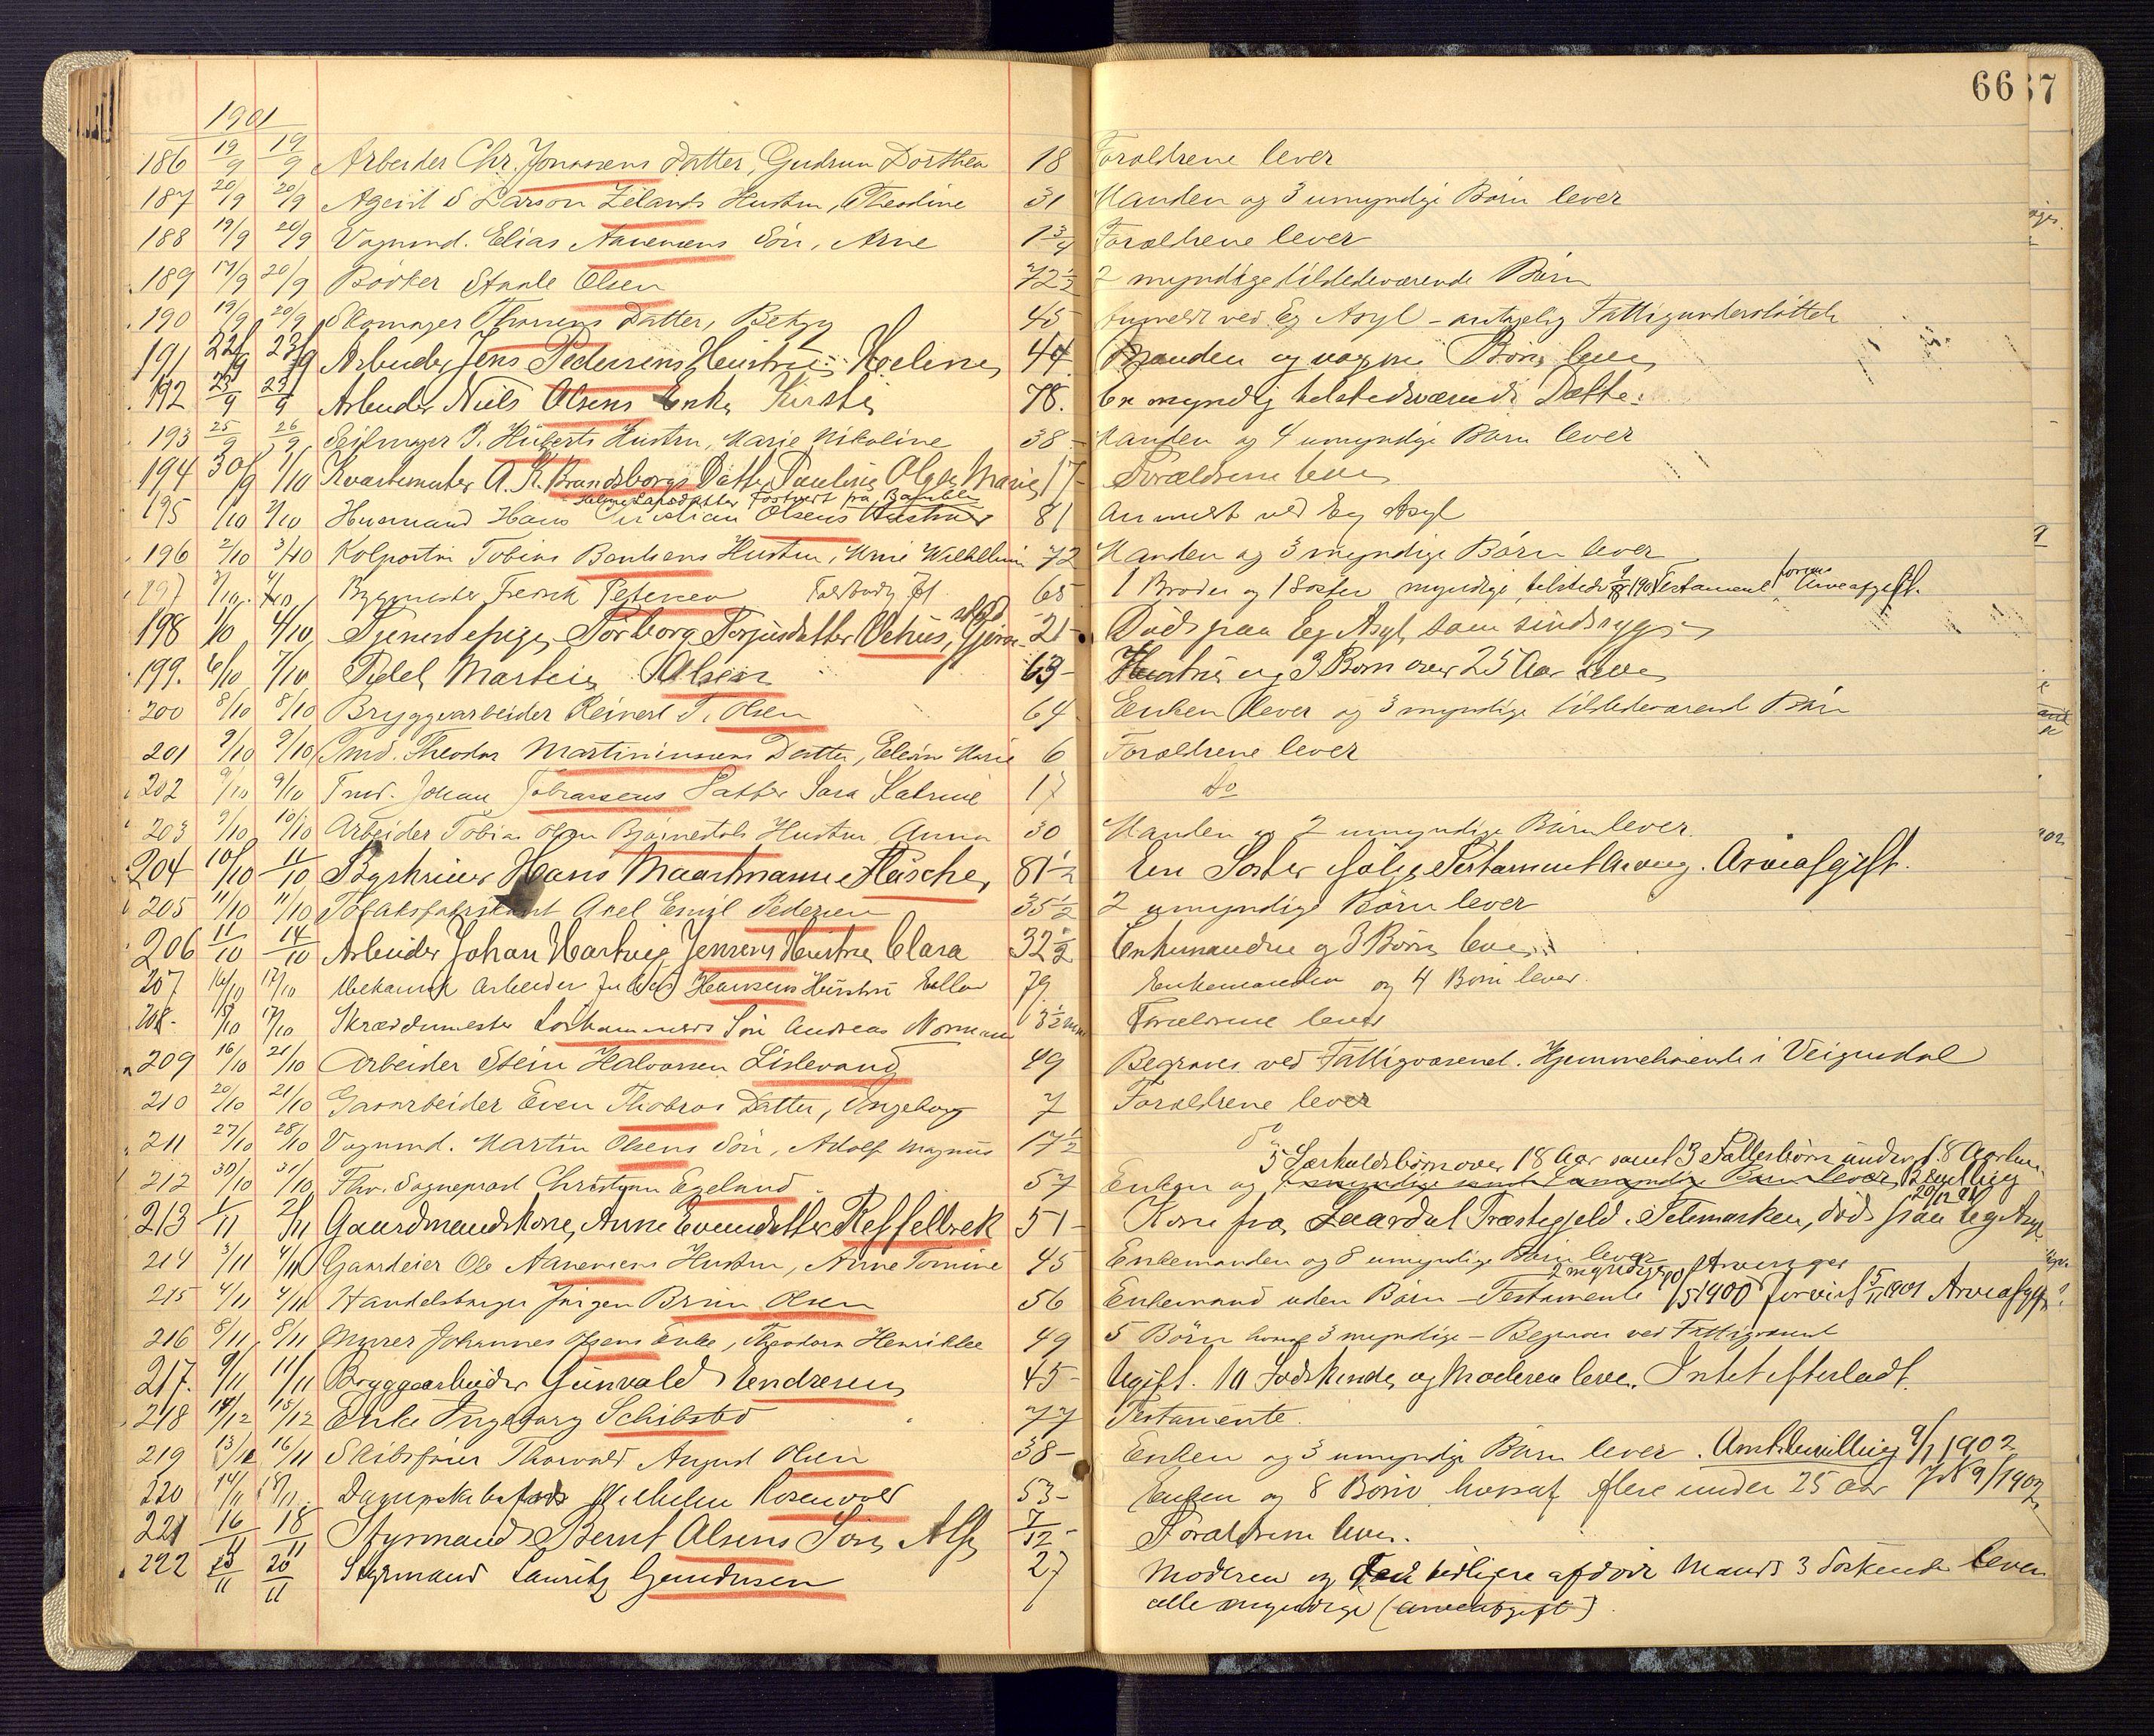 66 67
1901
186 19/9 19/9 Arbeider Chr. Jonassens Datter, Gudrun Dorthea 18 Forældrene lever
187 20/9 20/9 Agent S Larson Zelands Hustru, Theodine 31 Manden og 3 umyndige Børn lever
188 19/9 20/9 Vognmd. Elias Aanensens Søn, Arne 1 3/4 Forældrene lever
189 17/9 20/9 Bødker Staale Olsen 72 1/2 2 myndige tilstedeværende Børn
190 19/9 20/9 Skomager Datter, Betzy 45 Anmeldt ved Eg Asyl - antagelig Fattigunderstøttet
191 22/9 23/9 Arbeider Jens Pedersens Hustru Helene 44 Manden og voxne Børn lever
192 23/9 23/9 Arbeider Niels Olsens Enke Kirstie 78. En myndig tilstedeværende Datter
193 25/9 26/9 Seilmager P. Huberts Hustru, Marie Nikoline 38 - Manden og 4 umyndige Børn lever
194 30/9 1/10 Kvartermester A. K. Brandsborgs Datter Pauline Olga Marie 17 - Forældrene lever
Larsdatter Forsørget fra Bamble
195 1/10 2/10 Husmand Hans Christian Olsens Hustru 81 Anmeldt ved Eg Asyl
196 2/10 3/10 Kolportør Tobias Bentsens Hustru, Wilhelmine 72 Manden og 3 myndige Børn lever
197 3/10 4/10 Bygmester Fredrik Petersen 65 1 Broder og 1 Søster myndige, tilstede Testament Arveafgift.
198 1/10 4/10 Tjenestepige Torborg Torjusdatter Vehus, Gjerre 21 - Død paa Eg Asyl som sindssyg
199. 6/10 7/10 Pedel Martin Olsen 63 - Hustru og 3 Børn over 25 Aar lever
200 8/10 8/10 Bryggearbeider Reinert T. Olsen 64 Enken lever og 3 myndige tilstedeværend Børn
201 9/10 9/10 Tmd. Theodor Martiniussens Datter, Marie 6 Forældrene lever
202 9/10 9/10 Tmd. Johan Tobiassens Datter Sara Katrine 17 do
203 9/10 10/10 Arbeider Tobias Olsen Bjørnestøls Hustru Anna 30 Manden og 2 umyndige Børn lever.
204 10/10 11/10 Byskriver Hans Maartmann Flasche, 81 1/2 En Søster ifølge Testament Arving. Arveafgift.
205 11/10 11/10 Tobaksfabrikant Axel Emil Pedersen 35 1/2 2 umyndige Børn lever
206 11/10 14/10 Arbeider Johan Hartvig Jensens Hustru Clara 32 1/2 Enkemanden og 3 Børn lever
207 16/10 17/10 Mekanisk Arbeider Hansens Hustru Ellen 79 Enkemanden og 4 Børn lever.
208 - 15/10 17/10 Skræddermester Lorhammers Søn Andreas Normann 3 1/2 Forældrene lever
209 16/10 21/10 Arbeider Stein Halvorsen Lislevand 49 Begraves ved Fattigvæsenet. Hjemmehørende i Veigusdal
210 20/10 21/10 Garnarbeider Even Datter, Ingeborg 7 Forældrene lever
211 27/10 28/10 Vognmd. Martin Olsens Søn, Adolf Magnus 17 1/2 do
5 Særkuldsbørn over 18 Aar samt 3 Fællesbørn under 18 Aar lever
212 30/10 31/10 Fhv. Sogneprest Christian Egeland 57 Enken og
213 1/11 2/11 Gaardmandskone Anne Evensdatter Reffelbæk 51 - Kone fra Laardal Præstegjeld i Telemarken, død paa Eg Asyl
214 3/11 4/11 Gaardeier Ole Aanensens Hustru, Anne Tomine 45 Enkemanden og 8 umyndige Børn lever
2 myndige Arvinger
215 4/11 4/11 Handelsborger Jørgen Brun Olsen 56 Enkemand uden Børn - Testamente 1900 forevist 5/11 1901 Arveafgift?
216 8/11 8/11 Murer Johannes Olsens Enke, Theodora Henrikke 49 5 Børn hvoraf 3 myndige - Begraves ved Fattigvæsenet
217. 9/11 11/11 Bryggearbeider Gunvald Endresen 45 - Ugift. 10 Sødskende og Moderen lever. Intet efterladt.
218 14/12 15/12 Enke Ingeborg Schibsted 77 Testamente.
219 13/11 16/11 Skibsfører Thorvald August Olsen 38 - Enken og 3 umyndige Børn lever. Amtsbevilling 9/1 1902
220 14/11 18/11. Dampskibsfører Wilhelm Rosenvold 53 - Enken og 8 Børn hvoraf flere under 25 Aar
221 16/11 18/11 Styrmand Bernt Olsens Søn Alf 7/12 - Forældrene lever.
222 20/11 Styrmand Lauritz Gundersen 27 Moderen og den tidligere afdøde Mands 3 Søskende lever
alle myndige (Arveafgift)